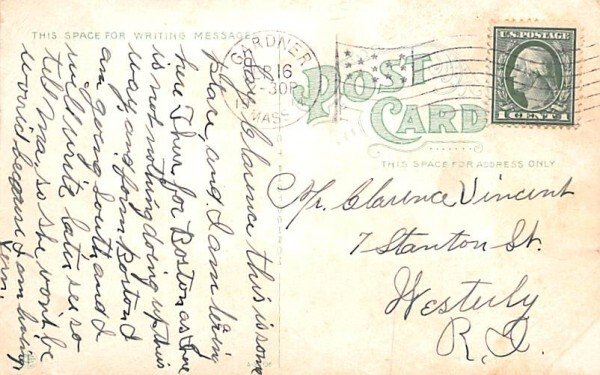 THIS SPACE FOR WRITING MESSAGES
GARDNER
16
-30P
MASS.
U.S. POSTAGE
1 CENT 1
POST
CARD
THIS SPACE FOR ADDRESS ONLY
Say Clarence this is some
place, and I am leaving
here Thur for Boston as there
is not nothing doing up this
way, and from Boston I
am going South and I
will write later so
tell ma, so she won't be
worried because I am leaving
Vern.
Mr. Clarence Vincent
7 Stanton St.
Westerly
R.I.